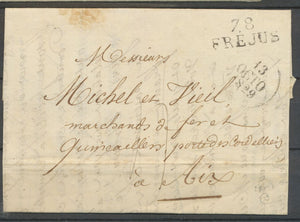 78
FRÉJUS
13
OCTO
Messieurs
Michel et Vieil
marchands de fer et
quincailliers porte des Cordeliers
à Aix